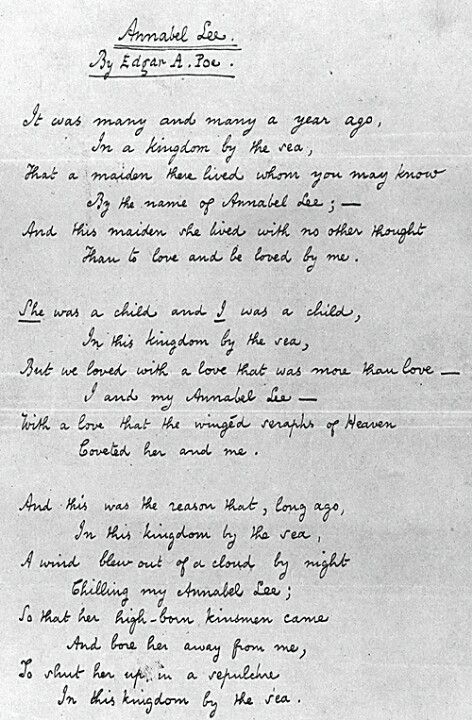 Annabel Lee.
By Edgar A. Poe.
It was many and many a year ago,
In a kingdom by the sea,
That a maiden there lived whom you may know
By the name of Annabel Lee; —
And this maiden she lived with no other thought
Than to love and be loved by me.
She was a child and I was a child,
In this kingdom by the sea,
But we loved with a love that was more than love —
I and my Annabel Lee —
With a love that the wingéd seraphs of Heaven
Coveted her and me.
And this was the reason that, long ago,
In this kingdom by the sea,
A wind blew out of a cloud by night
Chilling my Annabel Lee;
So that her high-born kinsmen came
And bore her away from me,
To shut her up in a sepulchre
In this kingdom by the sea.